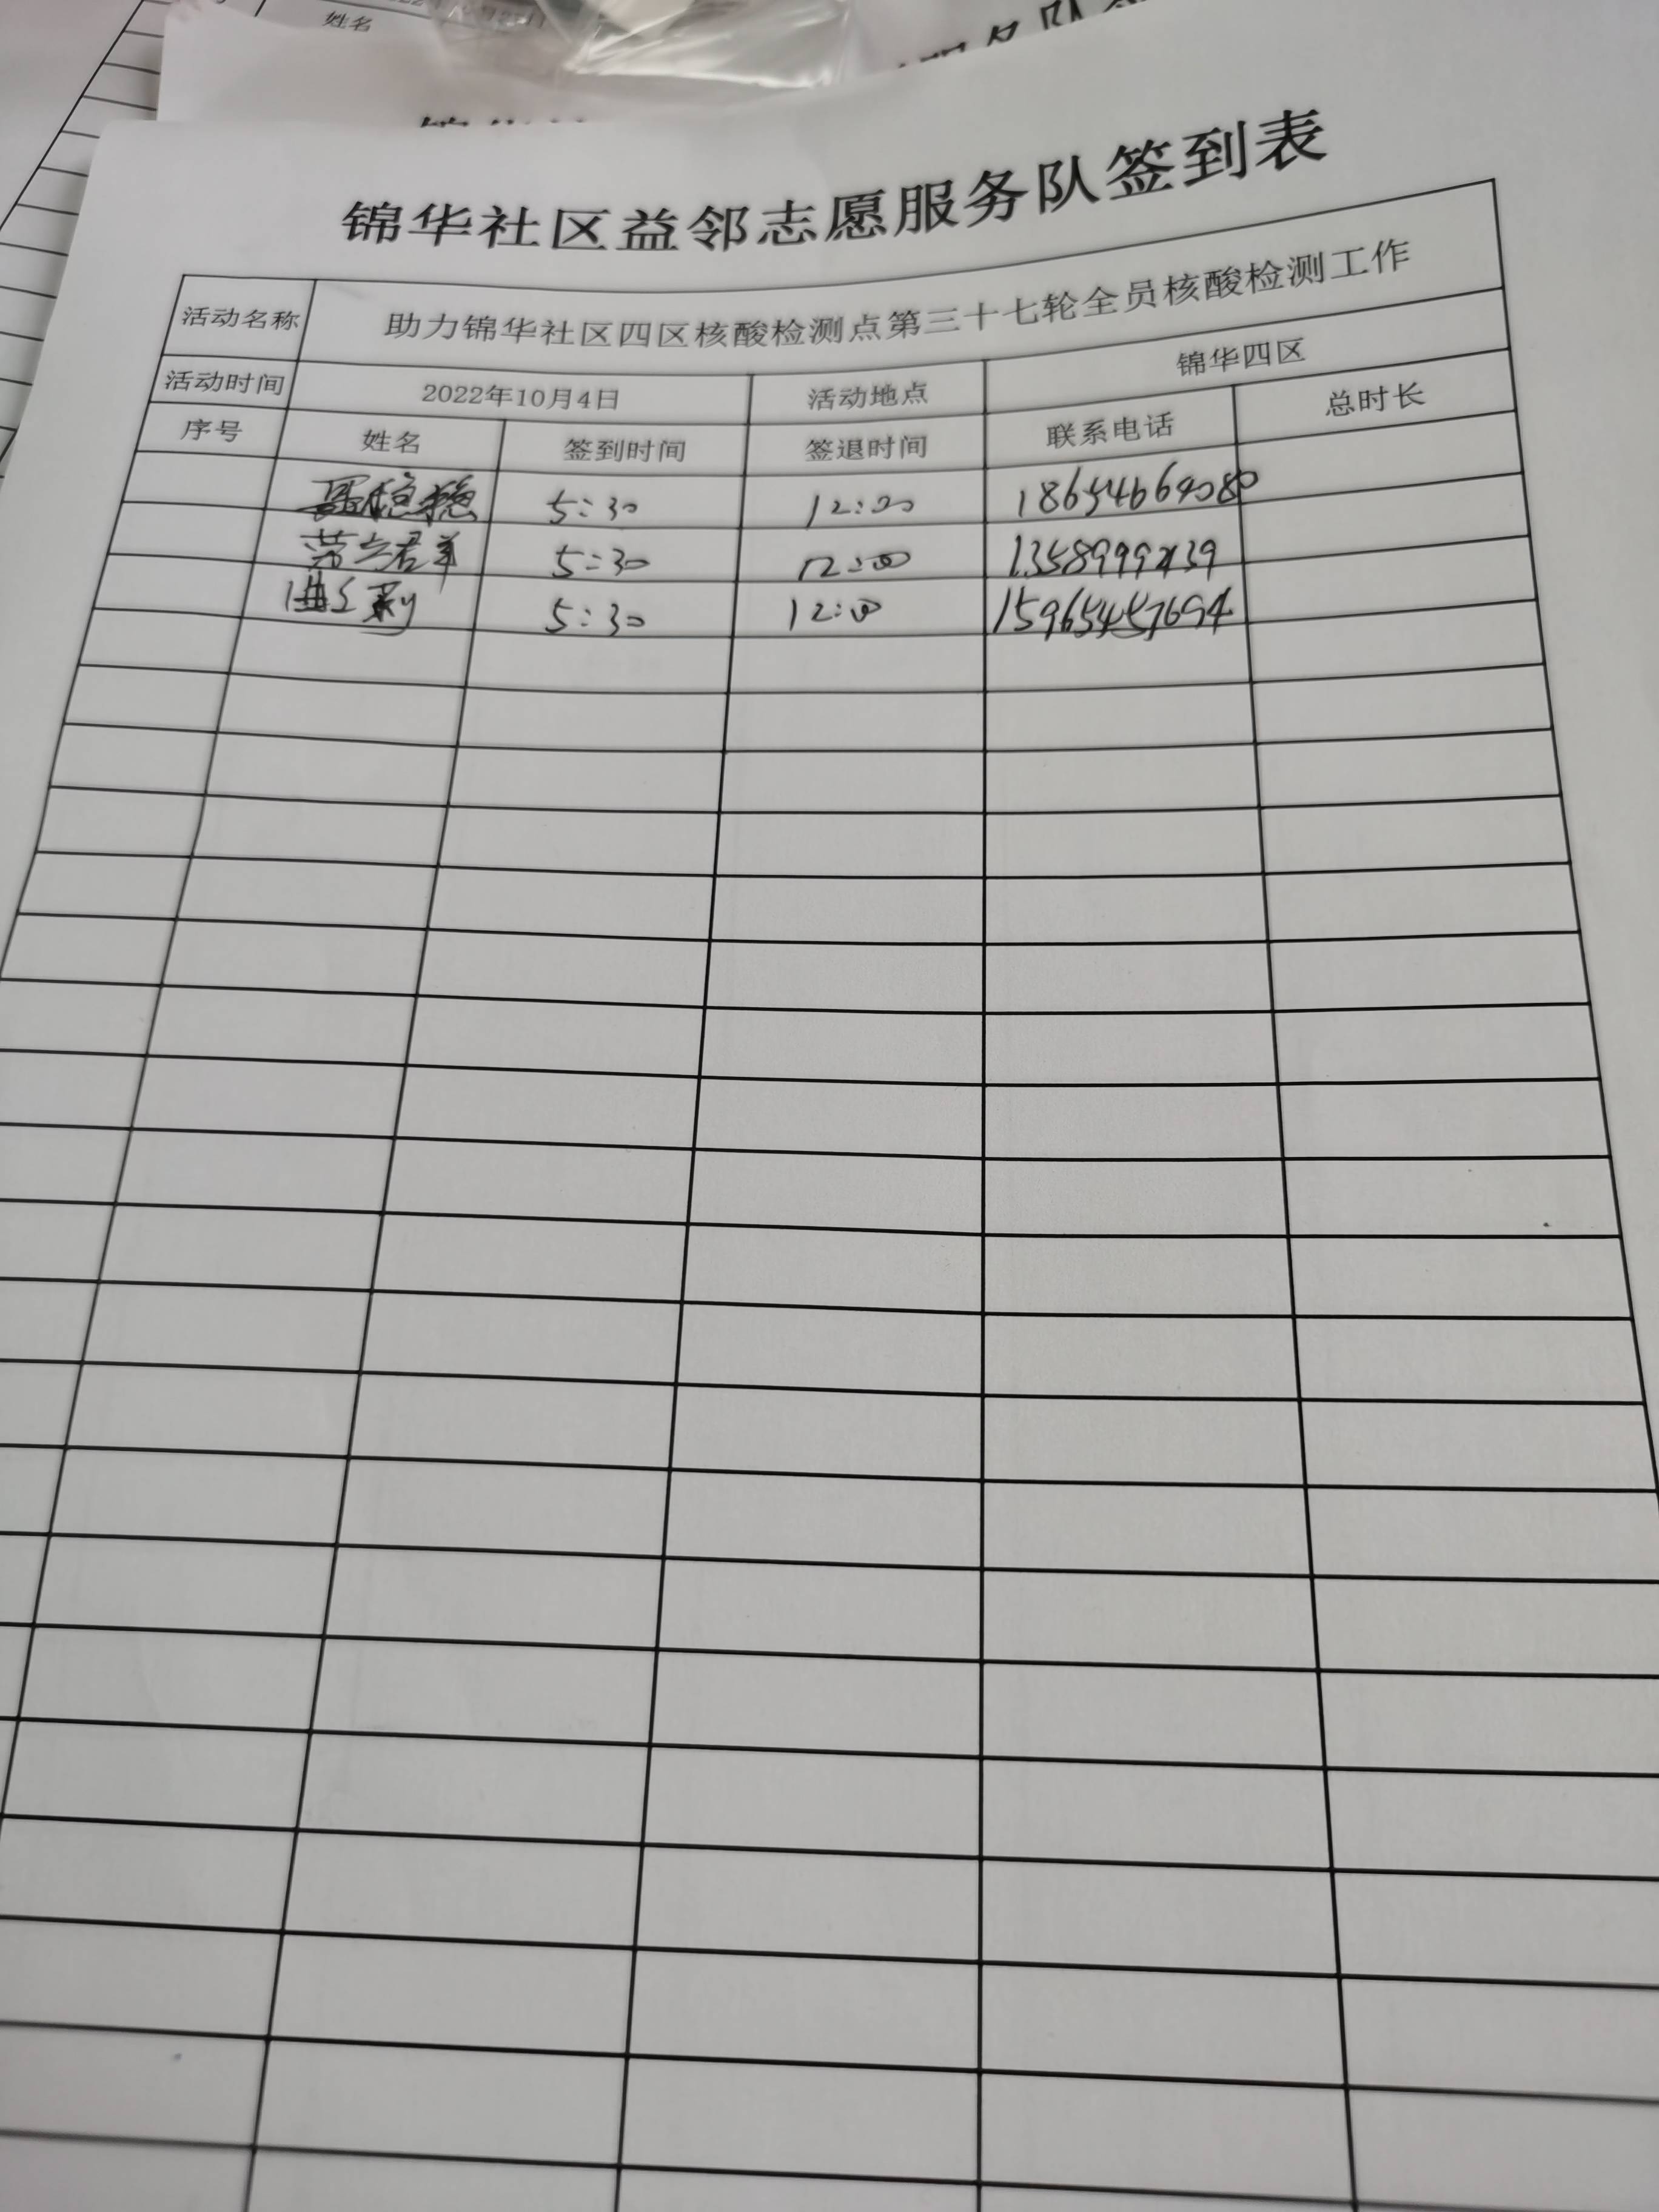 姓名
锦华社区益邻志愿服务队签到表
活动名称 助力锦华社区四区核酸检测点第三十七轮全员核酸检测工作
活动时间 2022年10月4日 活动地点 锦华四区
序号 姓名 签到时间 签退时间 联系电话 总时长
5:30 12:00
5:30 12:00
5:30 12:00